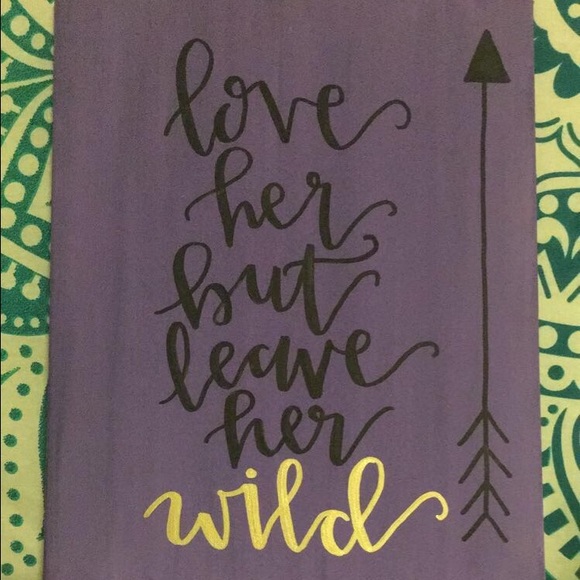 love
her,
but
leave
her
wild